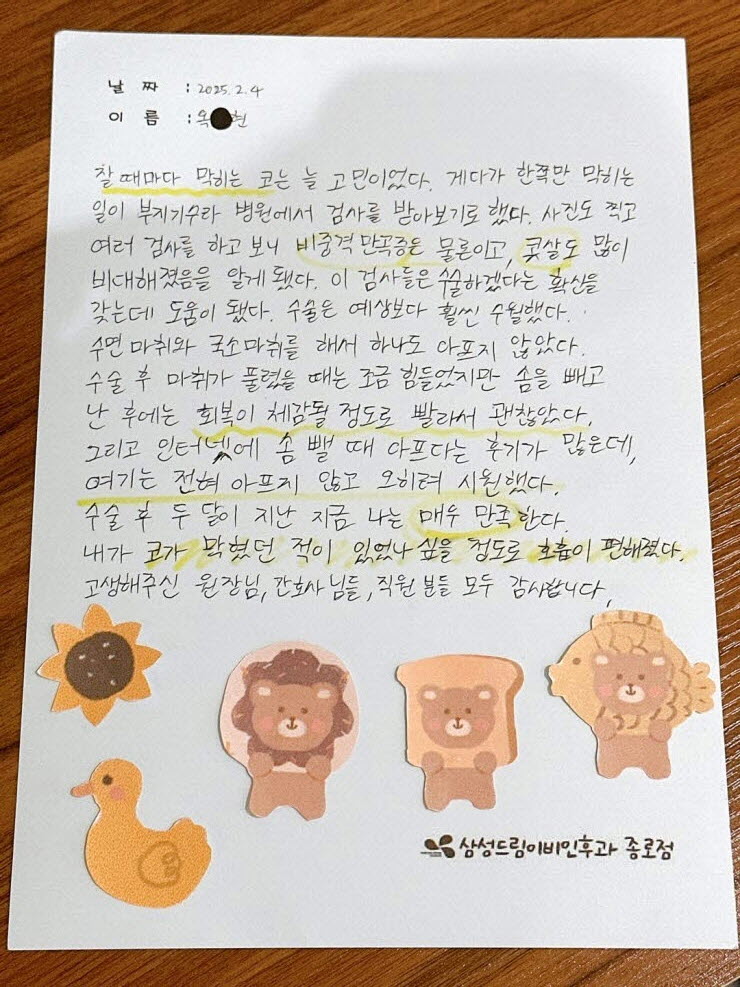 날 짜 : 2025.2.4
이 름 : 옥 현
잘 때마다 막히는 코는 늘 고민이었다. 게다가 한쪽만 막히는
일이 부지기수라 병원에서 검사를 받아보기로 했다. 사진도 찍고
여러 검사를 하고 보니 비중격 만곡증은 물론이고, 콧살도 많이
비대해졌음을 알게 됐다. 이 검사들은 수술하겠다는 확신을
갖는데 도움이 됐다. 수술은 예상보다 훨씬 수월했다.
수면 마취와 국소마취를 해서 하나도 아프지 않았다.
수술 후 마취가 풀렸을 때는 조금 힘들었지만 솜을 빼고
난 후에는 회복이 체감될 정도로 빨라서 괜찮았다.
그리고 인터넷에 솜 뺄 때 아프다는 후기가 많은데,
여기는 전혀 아프지 않고 오히려 시원했다.
수술 후 두 달이 지난 지금 나는 매우 만족한다.
내가 코가 막혔던 적이 있었나 싶을 정도로 호흡이 편해졌다.
고생해주신 원장님, 간호사님들, 직원 분들 모두 감사합니다.
삼성드림이비인후과 종로점